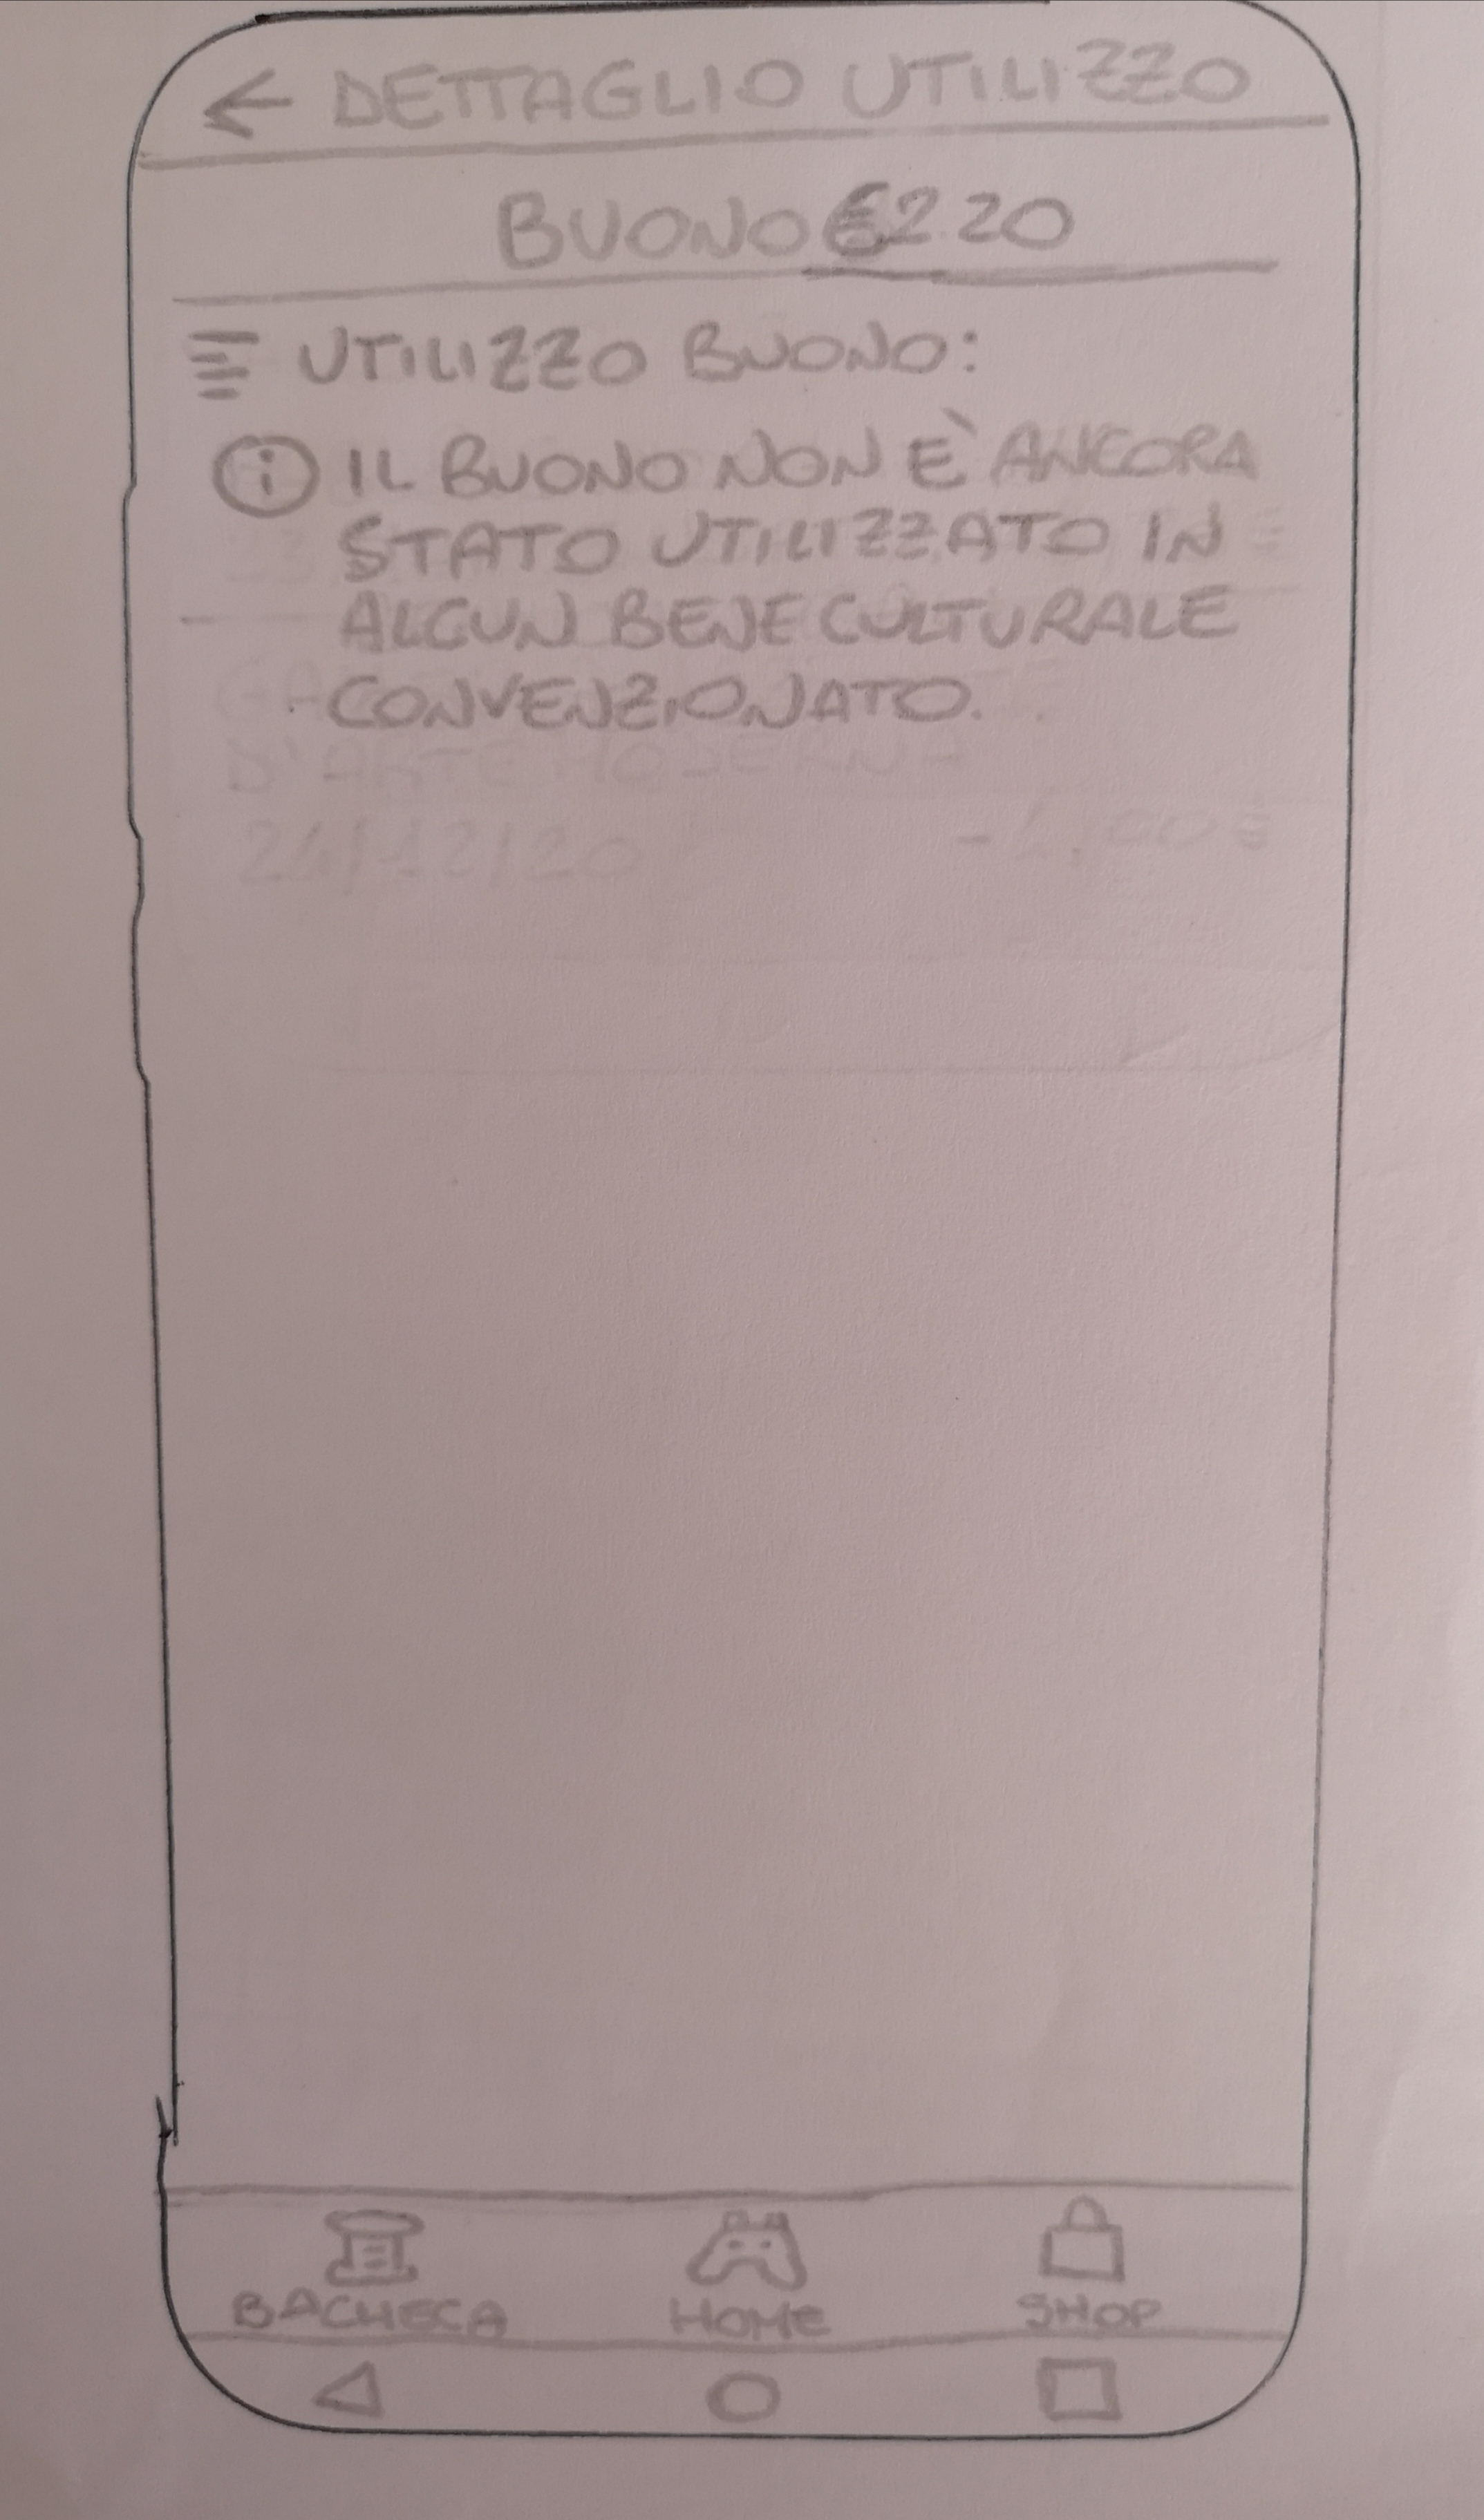 ← DETTAGLIO UTILIZZO
BUONO €2.20
UTILIZZO BUONO:
i IL BUONO NON È ANCORA
STATO UTILIZZATO IN
ALCUN BENE CULTURALE
CONVENZIONATO.
D'ARTE MODERNA
BACHECA HOME SHOP